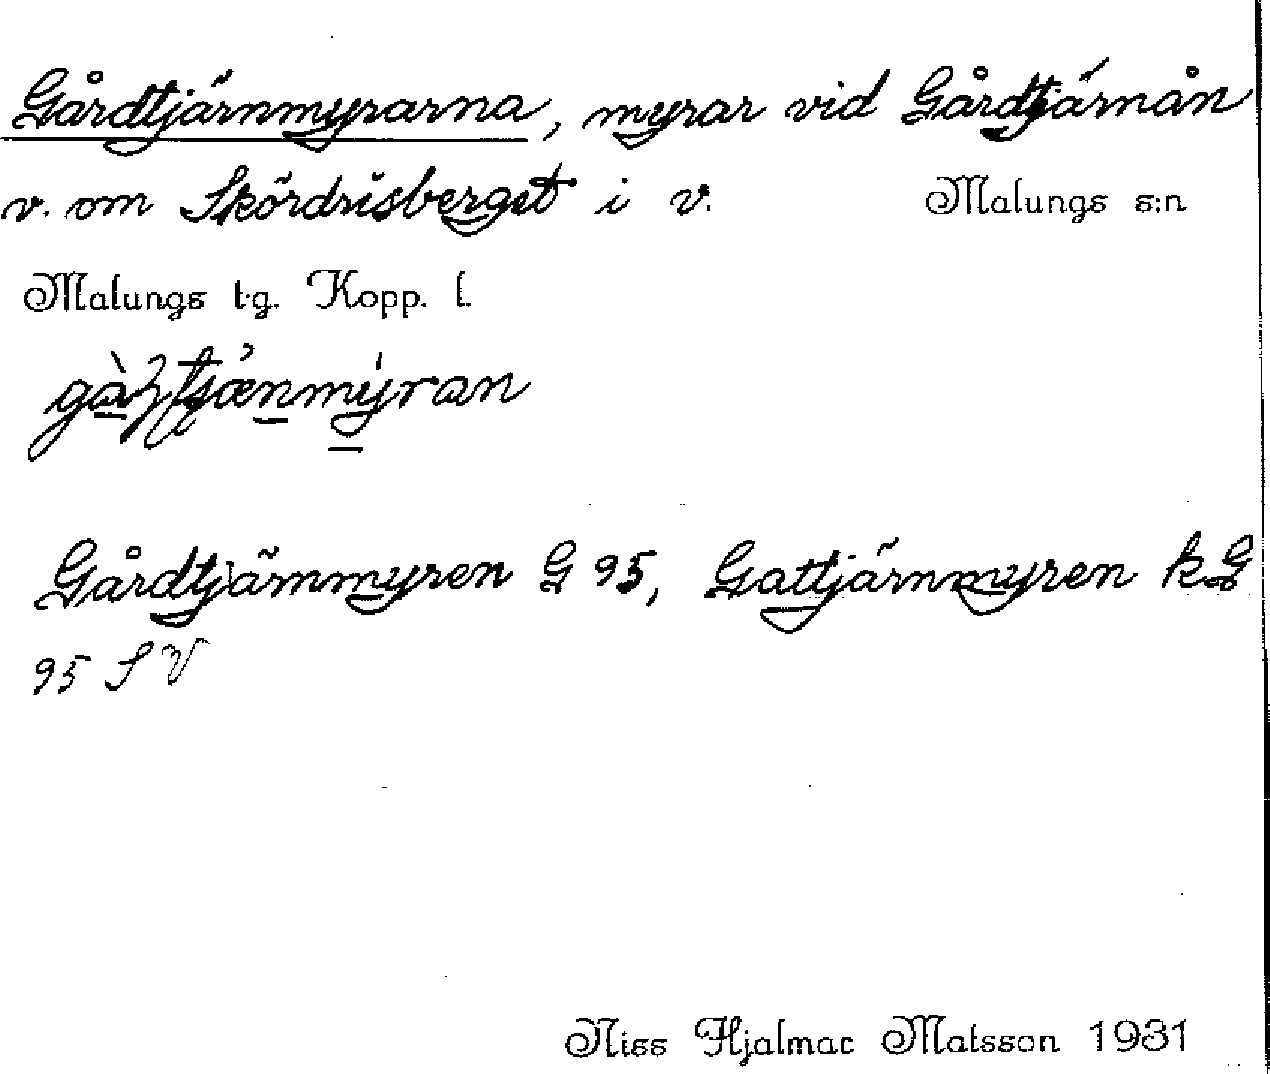 Gårdtjärnmyrarna, myrar vid Gårdtjärnån
v. om Skördrisberget i v. Malungs s:n
Malungs t.g. Kopp. l.
Gårdtjärnmyren G 95, Gattjärnmyren k G
95 S V
Niss Hjalmar Matsson 1931